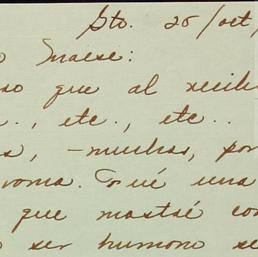 Sto. 28/oct,
o Maese:
so que al recibi
., etc., etc..
s, -muchas, por
roma. Fué una
que mostré con
ser humano se